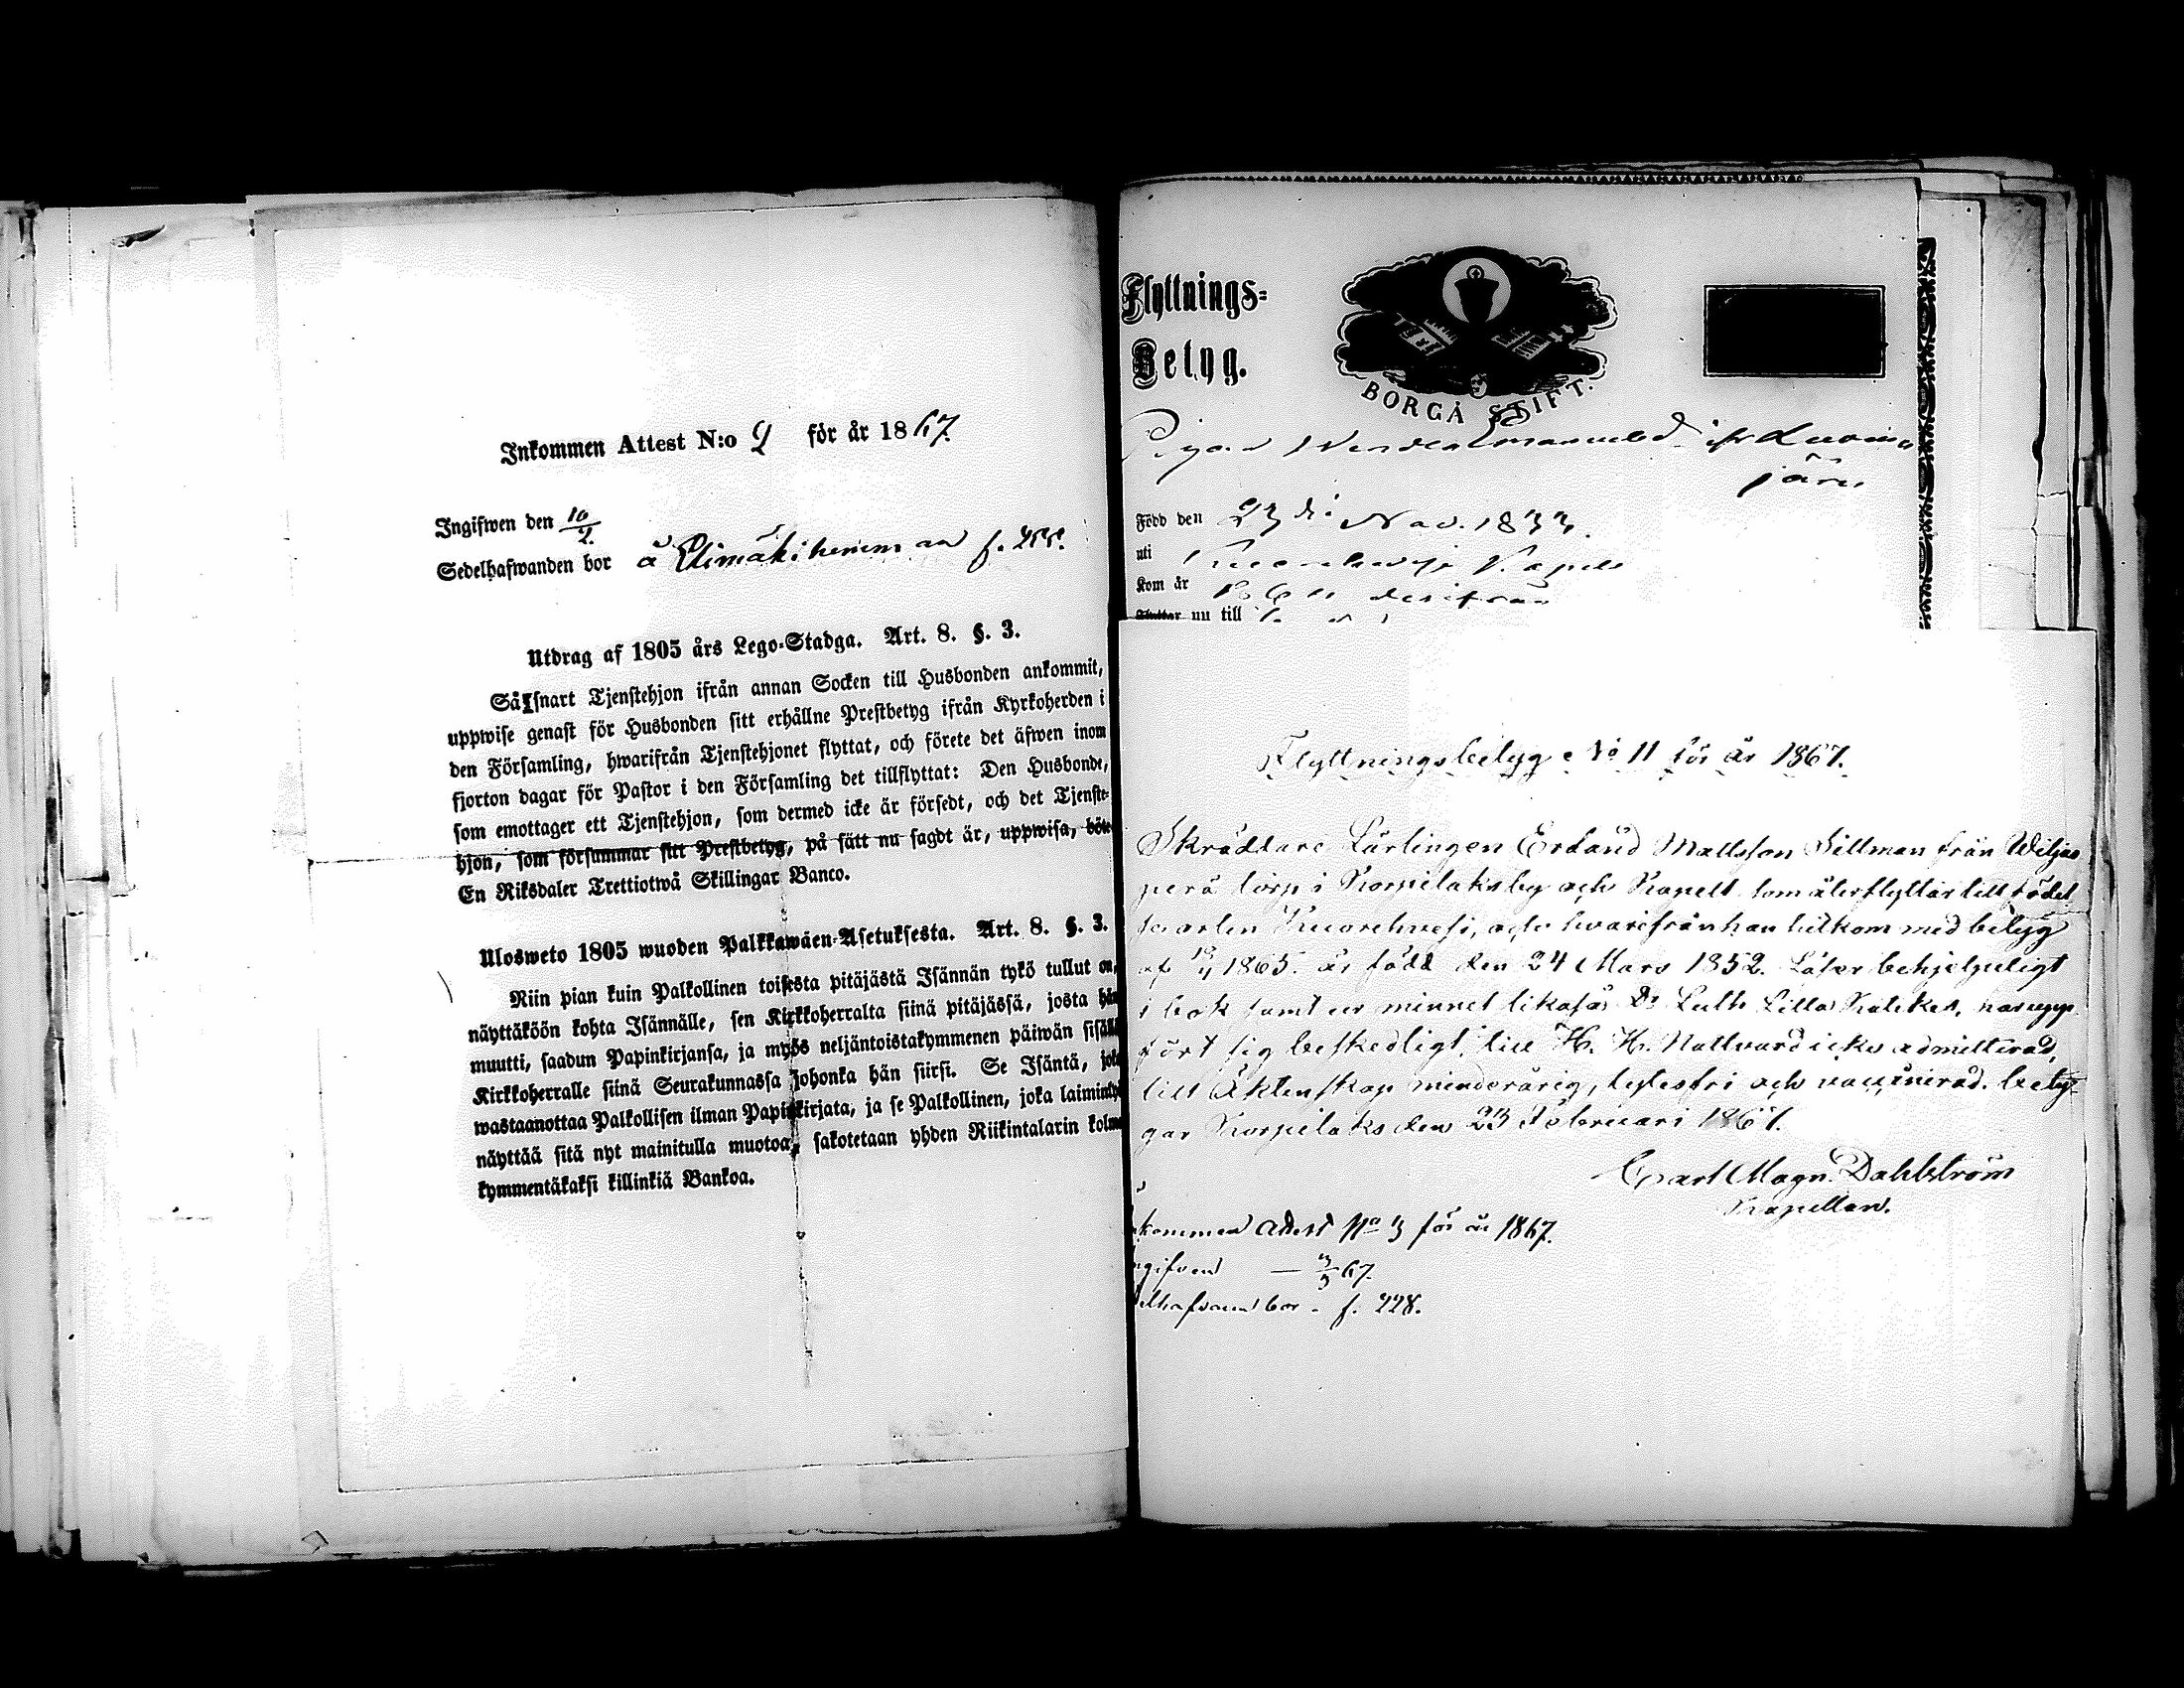 Inkommen Attest N:o 2 för år 1867.
Ingifwen den 10/2.
Sedelhafwanden bor å Elimäki hemman f. 255.
Utdrag af 1805 års Lego-Stadga. Art. 8. §. 3.
Så snart Tjenstehjon ifrån annan Socken till Husbonden ankommit,
uppwise genast för Husbonden sitt erhållne Prestbetyg ifrån Kyrkoherden i
den Församling, hwarifrån Tjenstehjonet flyttat, och förete det äfwen inom
fjorton dagar för Pastor i den Församling det tillflyttat: Den Husbonde,
som emottager ett Tjenstehjon, som dermed icke är försedt, och det Tjenste-
hjon, som försummar sitt Prestbetyg, på sätt nu sagdt är, uppwisa, böte
En Riksdaler Trettiotwå Skillingar Banco.
Ulosweto 1805 wuoden Palkkawäen-Asetuksesta. Art. 8. §. 3.
Niin pian kuin Palkollinen toisesta pitäjästä Isännän tykö tullut on,
näyttäköön kohta Isännälle, sen Kirkkoherralta siinä pitäjässä, josta hän
muutti, saadun Papinkirjansa, ja myös neljäntoistakymmenen päiwän sisällä
Kirkkoherralle siinä Seurakunnassa johonka hän siirsi. Se Isäntä, joka
wastaanottaa Palkollisen ilman Papinkirjata, ja se Palkollinen, joka laiminlyö
näyttää sitä nyt mainitulla muotoa, sakotetaan yhden Riikintalarin kolme
kymmentäkaksi killinkiä Bankoa.
Flyttnings-
Betyg.
BORGÅ STIFT.
Pigan Emanuelsd. ifr. Luoma
järvi
Född den 23 di Nov. 1833.
uti Kuorehvesi Kapell
Kom år derifrån
Flyttar nu till
Flyttningsbetyg No 11 för år 1867.
Skräddare Lärlingen Erland Mattsson Sillman från Wiljas
perä torp i Korpilaks by och Kapell som återflyttar till födel
se orten Kuorehvesi, och hvarifrån han hitkom med betyg
af 1865. är född den 24 Mars 1852. Läser behjelpeligt
i bok samt ur minnet likaså Dr Luth Lilla Kateches, har upp
fört sig beskedligt, till H. H. Nattvard icke admitterad,
till Äktenskap minderårig, lytesfri och vaccinerad. bety-
gar Korpilaks den 23 Februari 1867.
Carl Magn. Dahlström
Kapellan.
kommen Attest No 3 för år 1867.
ngifven — 3/3 67.
elhafvand bor - f. 228.